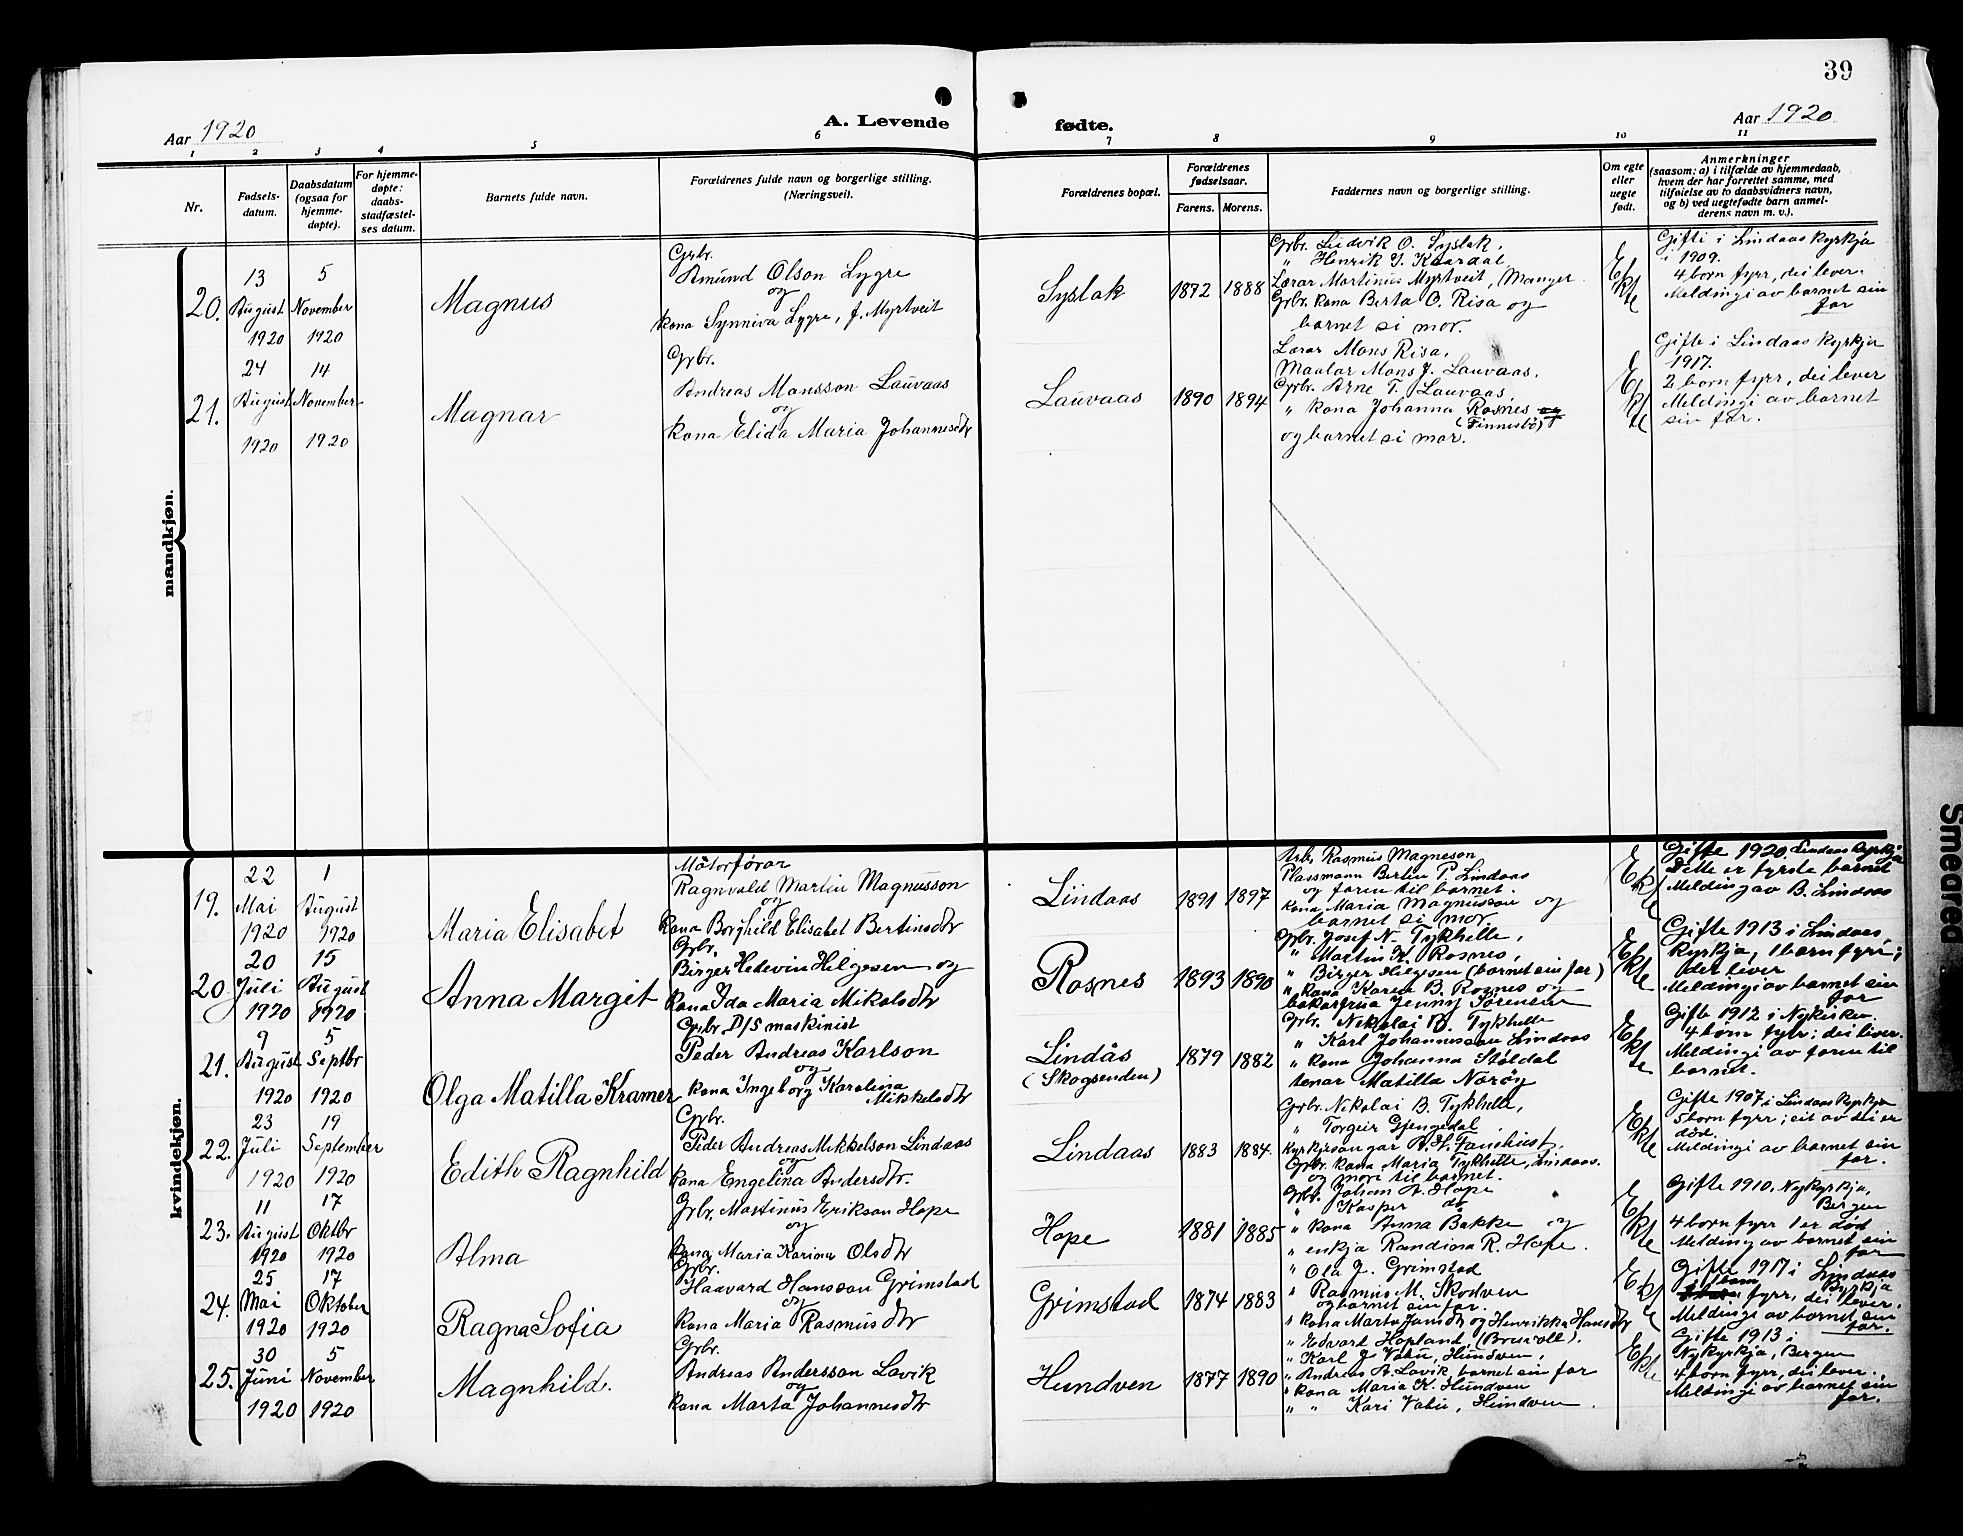 39
Aar 1920
A. Levende
fødte.
Aar 1920
1 2 3 4 5 6 7 8 9 10 11
Nr.
Fødsels-
datum.
Daabsdatum
(ogsaa for
hjemme-
døpte).
For hjemme-
døpte:
daabs-
stadfæstel-
ses datum.
Barnets fulde navn.
Forældrenes fulde navn og borgerlige stilling.
(Næringsvei).
Forældrenes bopæl.
Forældrenes
fødselsaar.
Farens. Morens.
Faddernes navn og borgerlige stilling.
Om egte
eller
uegte
født.
Anmerkninger
(saasom: a) i tilfælde av hjemmedaab,
hvem der har forrettet samme, med
tilføielse av to daabsvidners navn,
og b) ved uegtefødte barn anmel-
derens navn m. v.).
mandkjøn.
20.
13
August
1920
5
November
1920
Magnus
Grbr.
Amund Olson Lygre
og
kona Synniva Lygre, f. Myrtveit
Syslak
1872 1888
Grbr. Ludvik O. Syslak,
" Henrik I. Kaardal,
Lærar Martinus Myrtveit, Manger
Grbr. kona Berta O. Risa og
barnet si mor.
Ekte
Gifti i Lindaas kyrkja
i 1909.
4 born fyrr, dei lever.
Meldingi av barnet sin
far
21.
24
August
1920
14
November
1920
Magnar
Grbr.
Andreas Monsson Lauvaas
og
kona Elida Maria Johannesdtr
Lauvaas
1890 1894
Lærar Mons Risa,
Maalar Mons J. Lauvaas,
Grbr. Arne T. Lauvaas,
" kona Johanna Rosnes og
(Finnesbö)
og barnet si mor.
Ekte
Gifte i Lindaas kyrkja
1917.
2 born fyrr, dei lever
Meldingi av barnet
sin far.
kvindekjøn.
19.
22
Mai
1920
1
August
1920
Maria Elisabet
Motorförar
Ragnvald Martin Magnusson
og
kona Borghild Elisabet Bertinsdtr
Lindaas
1891 1897
Grbr. Rasmus Magneson
Plassmann Bertin P. Lindaas
og faren til barnet.
kona Maria Magnusson og
barnet si mor.
Ekte
Gifte 1920. Lindaas kyrkja
Dette er fyrste barnet
Melding av B. Lindaas
20.
20
Juli
1920
15
August
1920
Anna Margit
Grbr.
Birger Hedevin Helgesen og
kona Ida Maria Mikalsdtr
Rosnes
1893 1890
Grbr. Josef N. Tykhelle,
" Martin K. Rosnes,
" Birger Helgesen (barnet sin far)
" kona Karen B. Rosnes og
bakarfrua Jenny Sørensen
Ekte
Gifte 1913 i Lindaas
kyrkja, 1 barn fyrr;
det lever
Meldingi av barnet sin
far
21.
9
August
1920
5
Septbr
1920
Olga Matilla Kramer
Grbr. D/S maskinist
Peder Andreas Karlson
og
kona Ingeborg Karolina
Mikkelsdtr
Lindås
(Skogsenden)
1879 1882
Grbr. Nikolai B. Tykhelle
" Karl Johannessen Lindaas
" kona Johanna Stöldal
tenar Matilla Naröy
Ekte
Gifte 1912 i Nykirken.
4 børn fyrr; dei lever.
Meldingi av faren til
barnet.
22.
23
Juli
1920
19
September
1920
Edith Ragnhild
Grbr.
Peder Andreas Mikkelson Lindaas
og
kona Engelina Andersdtr.
Lindaas
1883 1884
Grbr. Nikolai B. Tykhelle,
" Torgeir Gjengedal
kyrkjesongar A. H. Fauskust,
Grbr. kona Maria Tykhelle, Lindaas.
og mori til barnet.
Ekte
Gifte 1907 i Lindaas kyrkja
5 born fyrr; eit av dei er
död.
Meldingi av barnet sin
far.
23.
11
August
1920
17
Oktbr
1920
Alma
Grbr. Martinus Erikson Hope
og
kona Maria Karina Olsdtr
Hope
1881 1885
Grbr. Johan A. Hope
" Kasper do
" kona Anna Bakke og
" enkja Randina R. Hope.
Ekte
Gifte 1910. Nykyrkja,
Bergen
4 born fyrr 1 er död
Melding av barnet sin
far
24.
25
Mai
1920
17
Oktober
1920
Ragna Sofia
Grbr.
Haavard Hansson Grimstad
og
kona Maria Rasmusdtr
Grimstad
1874 1883
" Ola J. Grimstad
" Rasmus M. Skodven
og barnet sin far.
" kona Marta Jansdtr og Henrikka Hansdtr
Ekte
Gifte 1917 i Lindaas
kyrkja
fyrr, dei lever.
Meldingi av barnet sin
far.
25.
30
Juni
1920
5
November
1920
Magnhild.
Grbr.
Andreas Andersson Lavik
og
kona Marta Johannesdtr
Hundven
1877 1890
" Edvart Hopland (Brusvoll).
" Karl J. Vabö, Hundven,
" Andreas A. Lavik, barnet sin far
" kona Maria K. Hundven
" " Kari Vabö, Hundven.
Ekte
Gifte 1913 i
Nykyrkja, Bergen
4 born fyrr, dei lever.
Meldingi av barnet sin
far.
Smeared